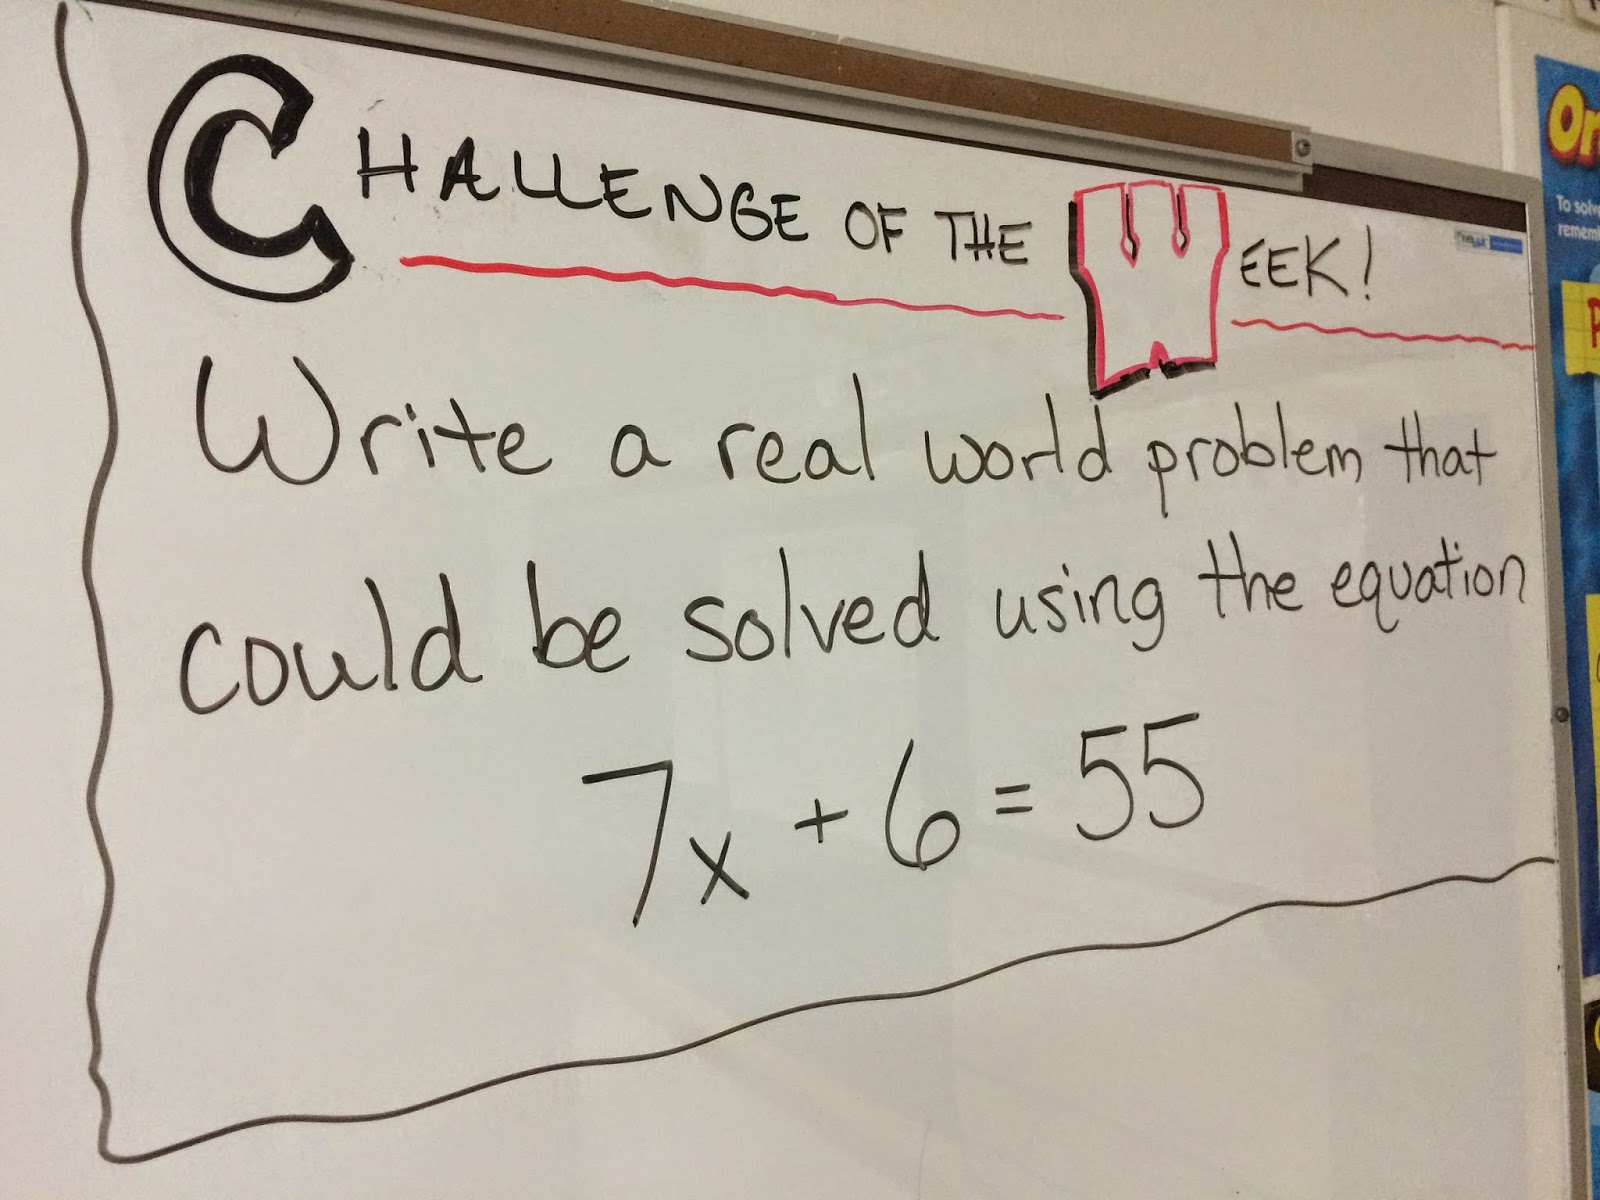 CHALLENGE OF THE WEEK!
Write a real world problem that
could be solved using the equation
7x + 6 = 55
Or
To solv
rememb
P